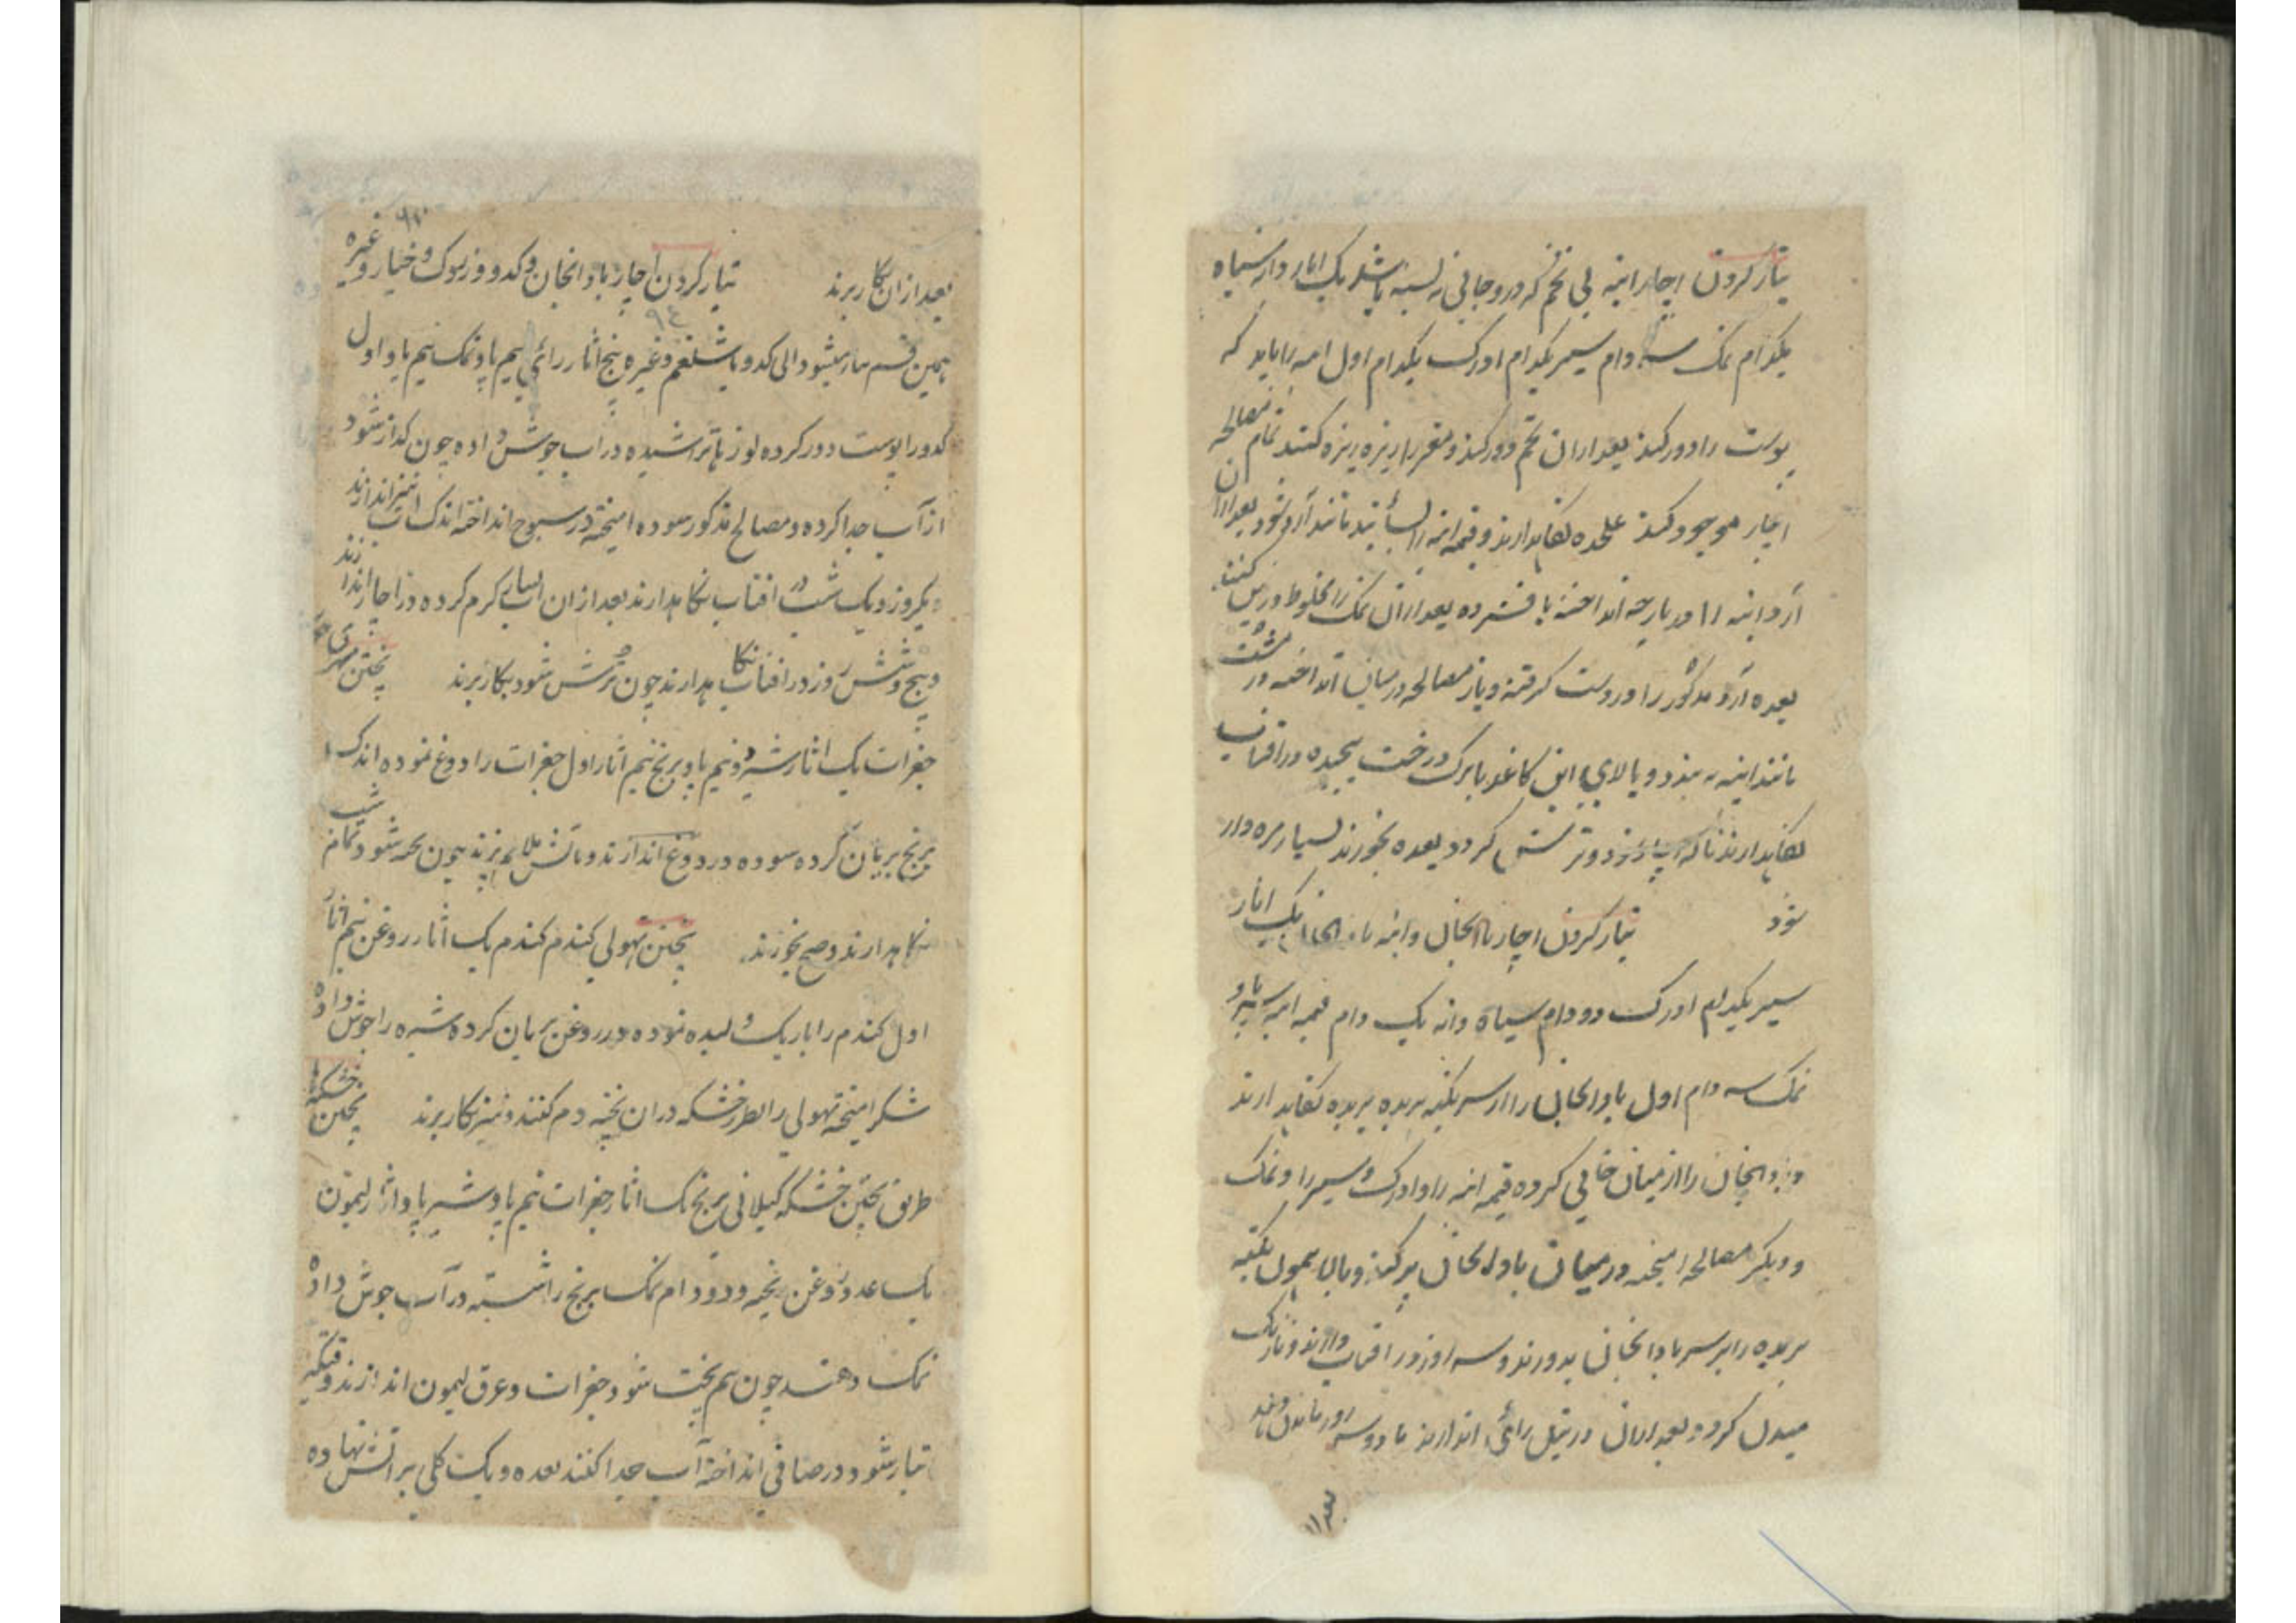 تیار کردن اچار انبه بی تخم که در و جالی نه بسته باشد یک اثار دانه سیاه
یکدام نمک سه دام سیر یکدام ادرک یکدام اول انبه را باید که
پوست را دور کنند بعد از ان تخم دور کنند و مغز را ریزه ریزه کنند تمام مصالحه
اچار موجود کنند علحده نگاهدارند و قیمه انبه را بسایند مانند آرد شود بعد ازان
آرد انبه را در پارچه انداخته بافشرده بعد ازان نمک را مخلوط درین کنند
بعده آرد مذکور را در دست گرفته و باز مصالحه درمیان انداخته در مشت
مانند انبه به بندد و بالای این کاغذ یا برک درخت پیچیده در افتاب
نگاهدارند تا که و ترش گردد بعده بخورند بسیار مزه دار
شود تیار کردن اچار بادنجان و انبه بادنجان یک اثار
سیر یکدام ادرک دو دام سیاه دانه یک دام قیمه انبه سه پاو
نمک سه دام اول بادنجان را از سر تکیه بریده بریده نگاهدارند
و بادنجان را از میان خالی کرده قیمه انبه را و ادرک و سیر را و نمک
و دیگر مصالحه امیخته درمیان بادنجان پر کنند و بالا همون تکیه
بریده را بر سر بادانجان بدوزند و سه روز در افتاب دارند و تا رنک
مبدل گردد بعد ازان در تیل رائی اندازند تا دو سه روز
بعد از
بعد ازان بکار برند تیار کردن اچار بادانجان و کدو و زردک و خیار و غیره
۹۴
همین قسم تیار میشود الی کدو یا شلغم و غیره پنج اثار رائی نیم پاو نمک نیم پاو اول
کدو را پوست دور کرده لوزها تراشیده در اب جوش داده چون گداز شود
از آب جدا کرده و مصالح مذکور سوده امیخته در سبوچ انداخته اندک آب نیز اندازند
و یکروز و یک شب در افتاب نگاهدارند بعد ازان اب را گرم کرده در اچار اندازند
و پنج و شش روز در افتاب نگاهدارند چون ترش شود بکار برند پختن مهری
جغرات یک اثار شیر دو نیم پاو برنج نیم اثار اول جغرات را دوغ نموده اندک
برنج بریان کرده سوده در دوغ اندازند و باتش ملایم پزند چون شود تمام شب
نگاهدارند و صبح بخورند پختن تهولی گندم گندم یک اثار روغن نیم اثار
اول گندم را باریک دلیده نموده در روغن بریان کرده شیره را جوش داده
شکر امیخته تهولی را بطرز خشکه دران پخته دم کنند و نیز بکار برند پختن خشکه
طریق پختن خشکه گیلانی برنج یک اثار جغرات نیم پاو شیر پاو اثار لیمون
یک عدد روغن پنجه و دو دام نمک برنج را شسته در آب جوش داده
نمک دهند چون نیم پخت شود جغرات و عرق لیمون اندازند وقتیکه
تیار شود در صافی انداخته آب جدا کنند بعده دیک گلی بر اتش نهاده